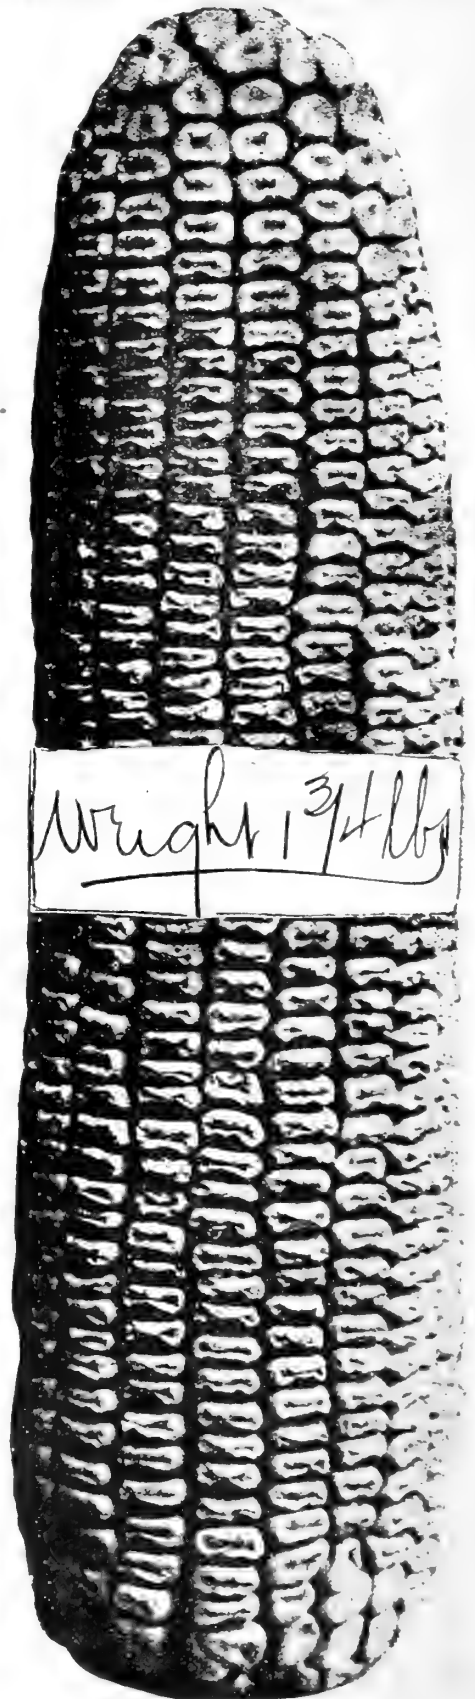 Weight 1 3/4 lbs